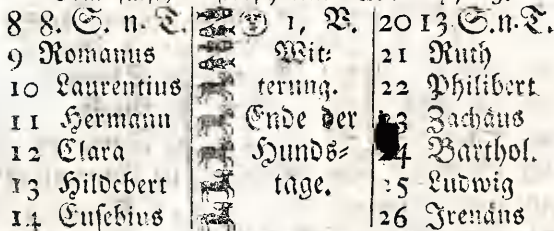 8 8. S. n. T. 1, V. 20 13 S. n. T.
9 Romanus Wit⸗ 21 Ruth
10 Laurentius terung. 22 Philibert
11 Hermann Ende der 23 Zachäus
12 Clara Hunds⸗ 24 Barthol.
13 Hildebert tage. 25 Ludwig
14 Eusebius 26 Irenäus